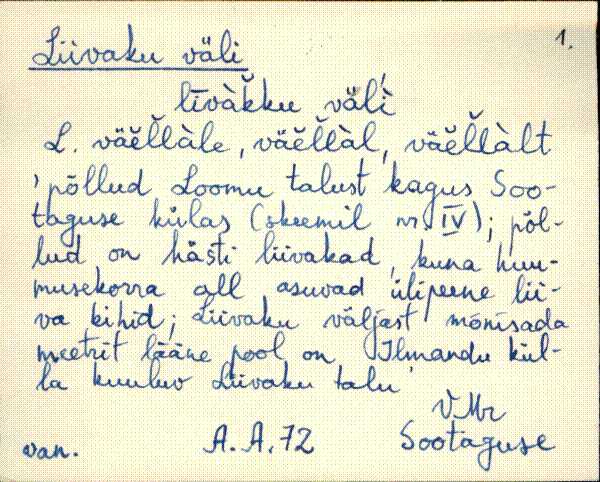 1.
Liivaku väli
līvàk̆ku väl̆ì
L. väĕl̆làle, väĕl̆làl, väĕl̆làlt
'põllud Loomu talust kagus Soo-
taguse külas (skeemil nr. IV); põl-
lud on hästi liivakad, kuna huu-
musekorra all asuvad ülipeene lii-
va kihid; Liivaku väljast mõnisada
meetrit lääne pool on Ilmandu kül-
la kuuluv Liivaku talu'
V Mr
van. A.A. 72 Sootaguse